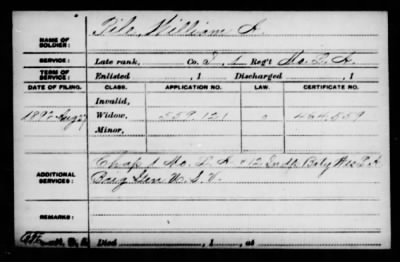 NAME OF SOLDIER: Pile, William A.
SERVICE: Late rank, Co. I, 1 Reg't Mo. L. A.
TERM OF SERVICE: Enlisted , 1 Discharged , 1
DATE OF FILING. CLASS. APPLICATION NO. LAW. CERTIFICATE NO.
Invalid,
1892 Aug 27 Widow, 559,121
Minor,
ADDITIONAL SERVICES: Chap 1 Mo. L A + 12 Indp. Bat'y
Brig Gen U. S. V.
REMARKS:
Died , 1 , at